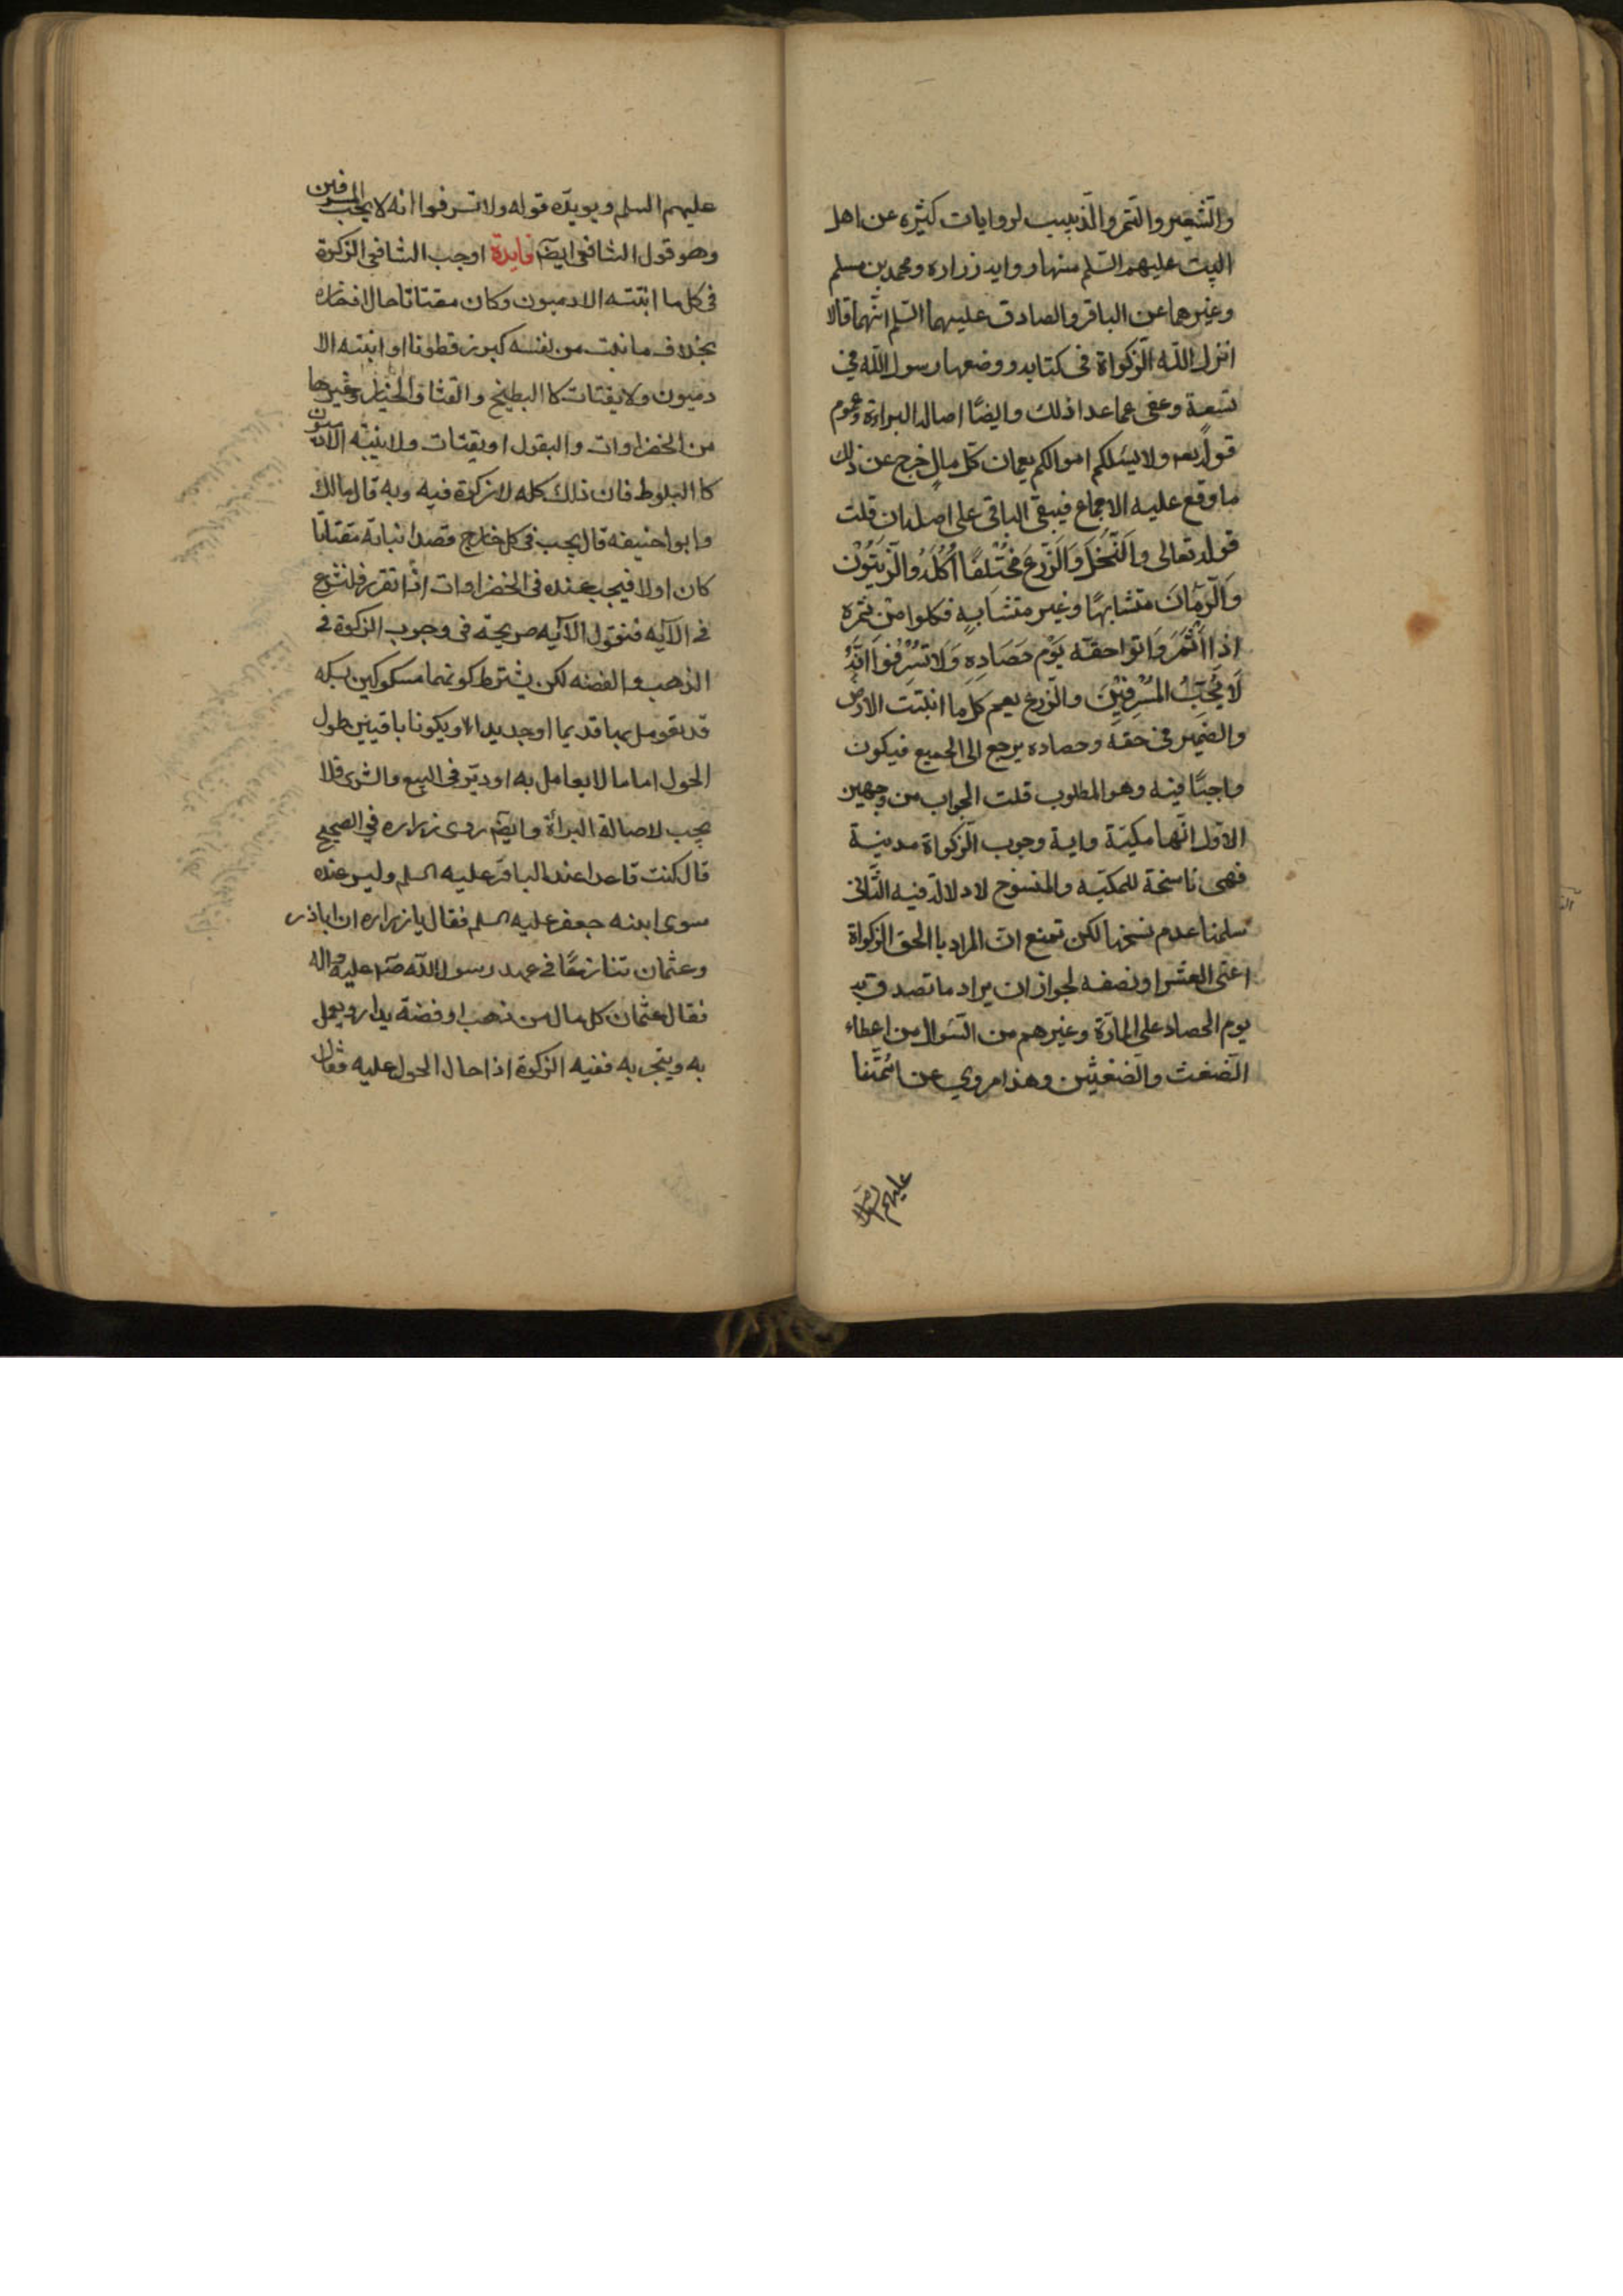 والشعير والتمر والذبيب لروايات كثيره عن اهل
البيت عليهم السلم منها روايه زراره ومحمد بن مسلم
وغيرهما عن الباقر والصادق عليهما السلم انهما قالا
انزل الله الزكواة فى كتابه ووضعها رسول الله في
تسعة وعفى عما عدا ذلك وايضًا اصاله البراءة وعموم
قوله تعه ولا يسئلكم اموالكم يعمان كل مالٍ خرج عن ذلك
ما وقع عليه الاجماع فيبقى الباقى على اصله ان قلت
قوله تعالى وَالنَّخْلَ وَالزَّرْعَ مُخْتَلِفًا اُكُلُهُ وَالزَّيْتُوْن
وَالرُّمَّانَ متشابهًا وغير متشابهٍ فكلوا من ثمره
اِذا اَثْمَرَ وَاتوا حقّه يَوْم حَصَادِهِ وَلاَ تُسْرِفوا اِنَّهُ
لَا يُحِبُّ المُسْرِفِيْنَ والزرع يعم كل ما انبتت الارض
والضمير فى حقه وحصاده يرجع الى الجميع فيكون
واجبًا فيه وهو المطلوب قلت الجواب من وجهين
الاول انها مكيّة واية وجوب الزكواة مدنية
فهى ناسخة للمكيّه والمنسوخ لا دلالة فيه الثّانى
سلمنا عدم نسخها لكن نمنع ان المراد باالحق الزكواة
اعنى العشر او نصفه لجواز ان يراد ما تصدق به
يوم الحصاد على المارّة وغيرهم من السّوال من اعطاء
الضغث والضغثين وهذا مروي عن ائمتنا
عليهم السلام
عليهم السلم ويويده قوله ولا تسرفوا انه لا يحب المسرفين
وهو قول الشافعى ايضً فايدة اوجب الشافعى الزكوة
فى كل ما انبتته الادميون وكان مقتاتا حال ادخاره
بخلاف ما نبت من نفسه كبرز قطونا او انبته الا
دميون ولا يقتات كا البطيخ والقثا والخيار وغيرها
من الخضراوات والبقول او يقتات ولا ينبته الادميون
كا البلوط فان ذلك كله لا زكوة فيه وبه قال مالك
وابوا حنيفه قال يجب فى كل خارج قصد انباته مقتاتا
كان اولا فيجب عنده فى الخضراوات اذا تقرر فلنشرع
فى الآيه فنقول الآيه صريحة فى وجوب الزكوة فى
الذهب والفضه لكن يشترط كونهما مسكوكين بسكه
قد تعومل بها قديما اوجديدا او يكونا باقيين طول
الحول اما ما لا يعامل به او ديّر فى البيع والشرى فلا
يجب لاصالة البرأة وايضً روى زراره في الصحيح
قال كنت قاعدا عند الباقر عليه السلم وليس عنده
سوى ابنه جعفر عليه السلم فقال يا زراره ان اباذر
وعثمان تنازعًا فى عهد رسول الله صّ عليه واله
فقال عثمان كل مال من ذهب او فضة يدار ويعمل
به ويتجر به ففيه الزكوة اذا حال الحول عليه فقال